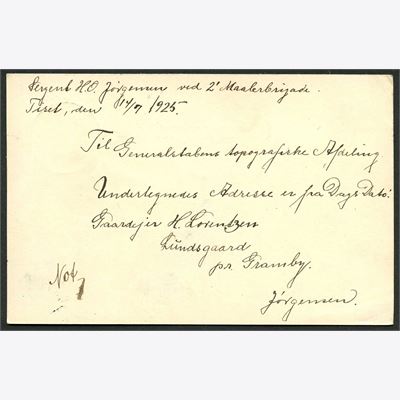 Sergent H.O. Jørgensen ved 2' Maalerbrigade.
Tiset, den 14/7 1925.
Til Generalstabens topografiske Afdeling
Undertegnedes Adresse er fra Dags Dato:
Gaardejer H. Lorentzen
Lundsgaard
pr. Gramby.
Jørgensen.
Not.